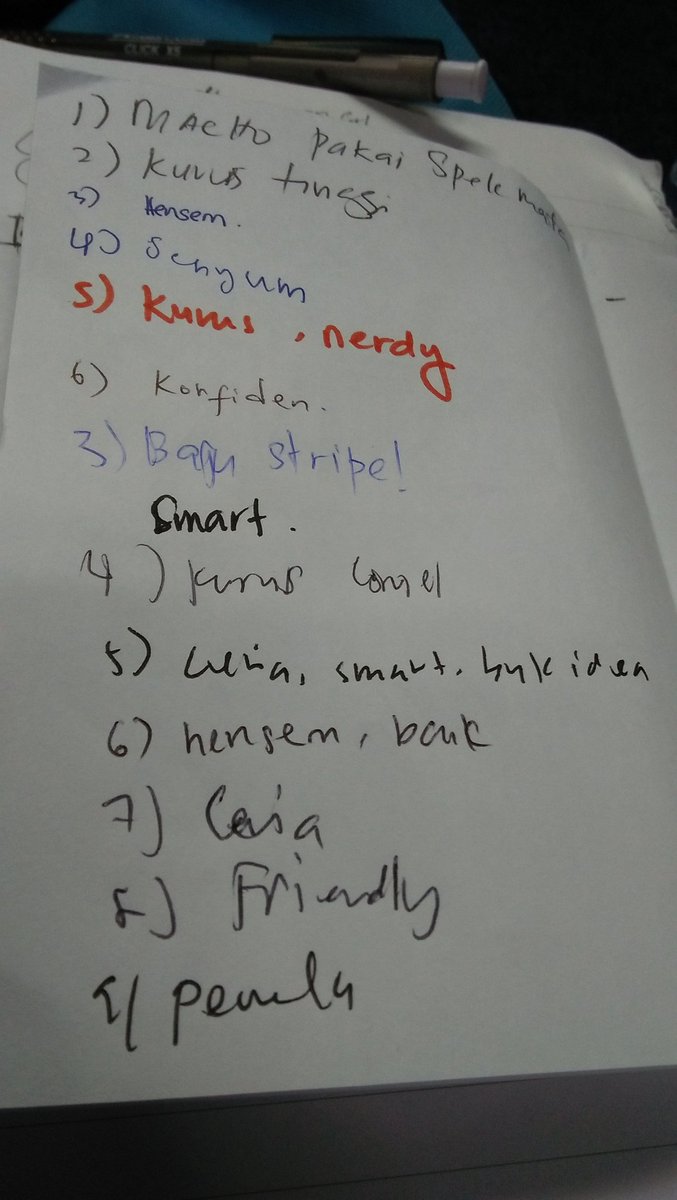 CLICK X5
1) MACHO pakai Spek mata
2) kurus tinggi
3) Hensem.
4) Senyum
5) kurus, nerdy
6) Konfiden.
3) Baju stripe!
Smart.
4) kurus comel
5) ceria, smart. byk idea
6) hensem, baik
7) Ceria
8) Friendly
9)